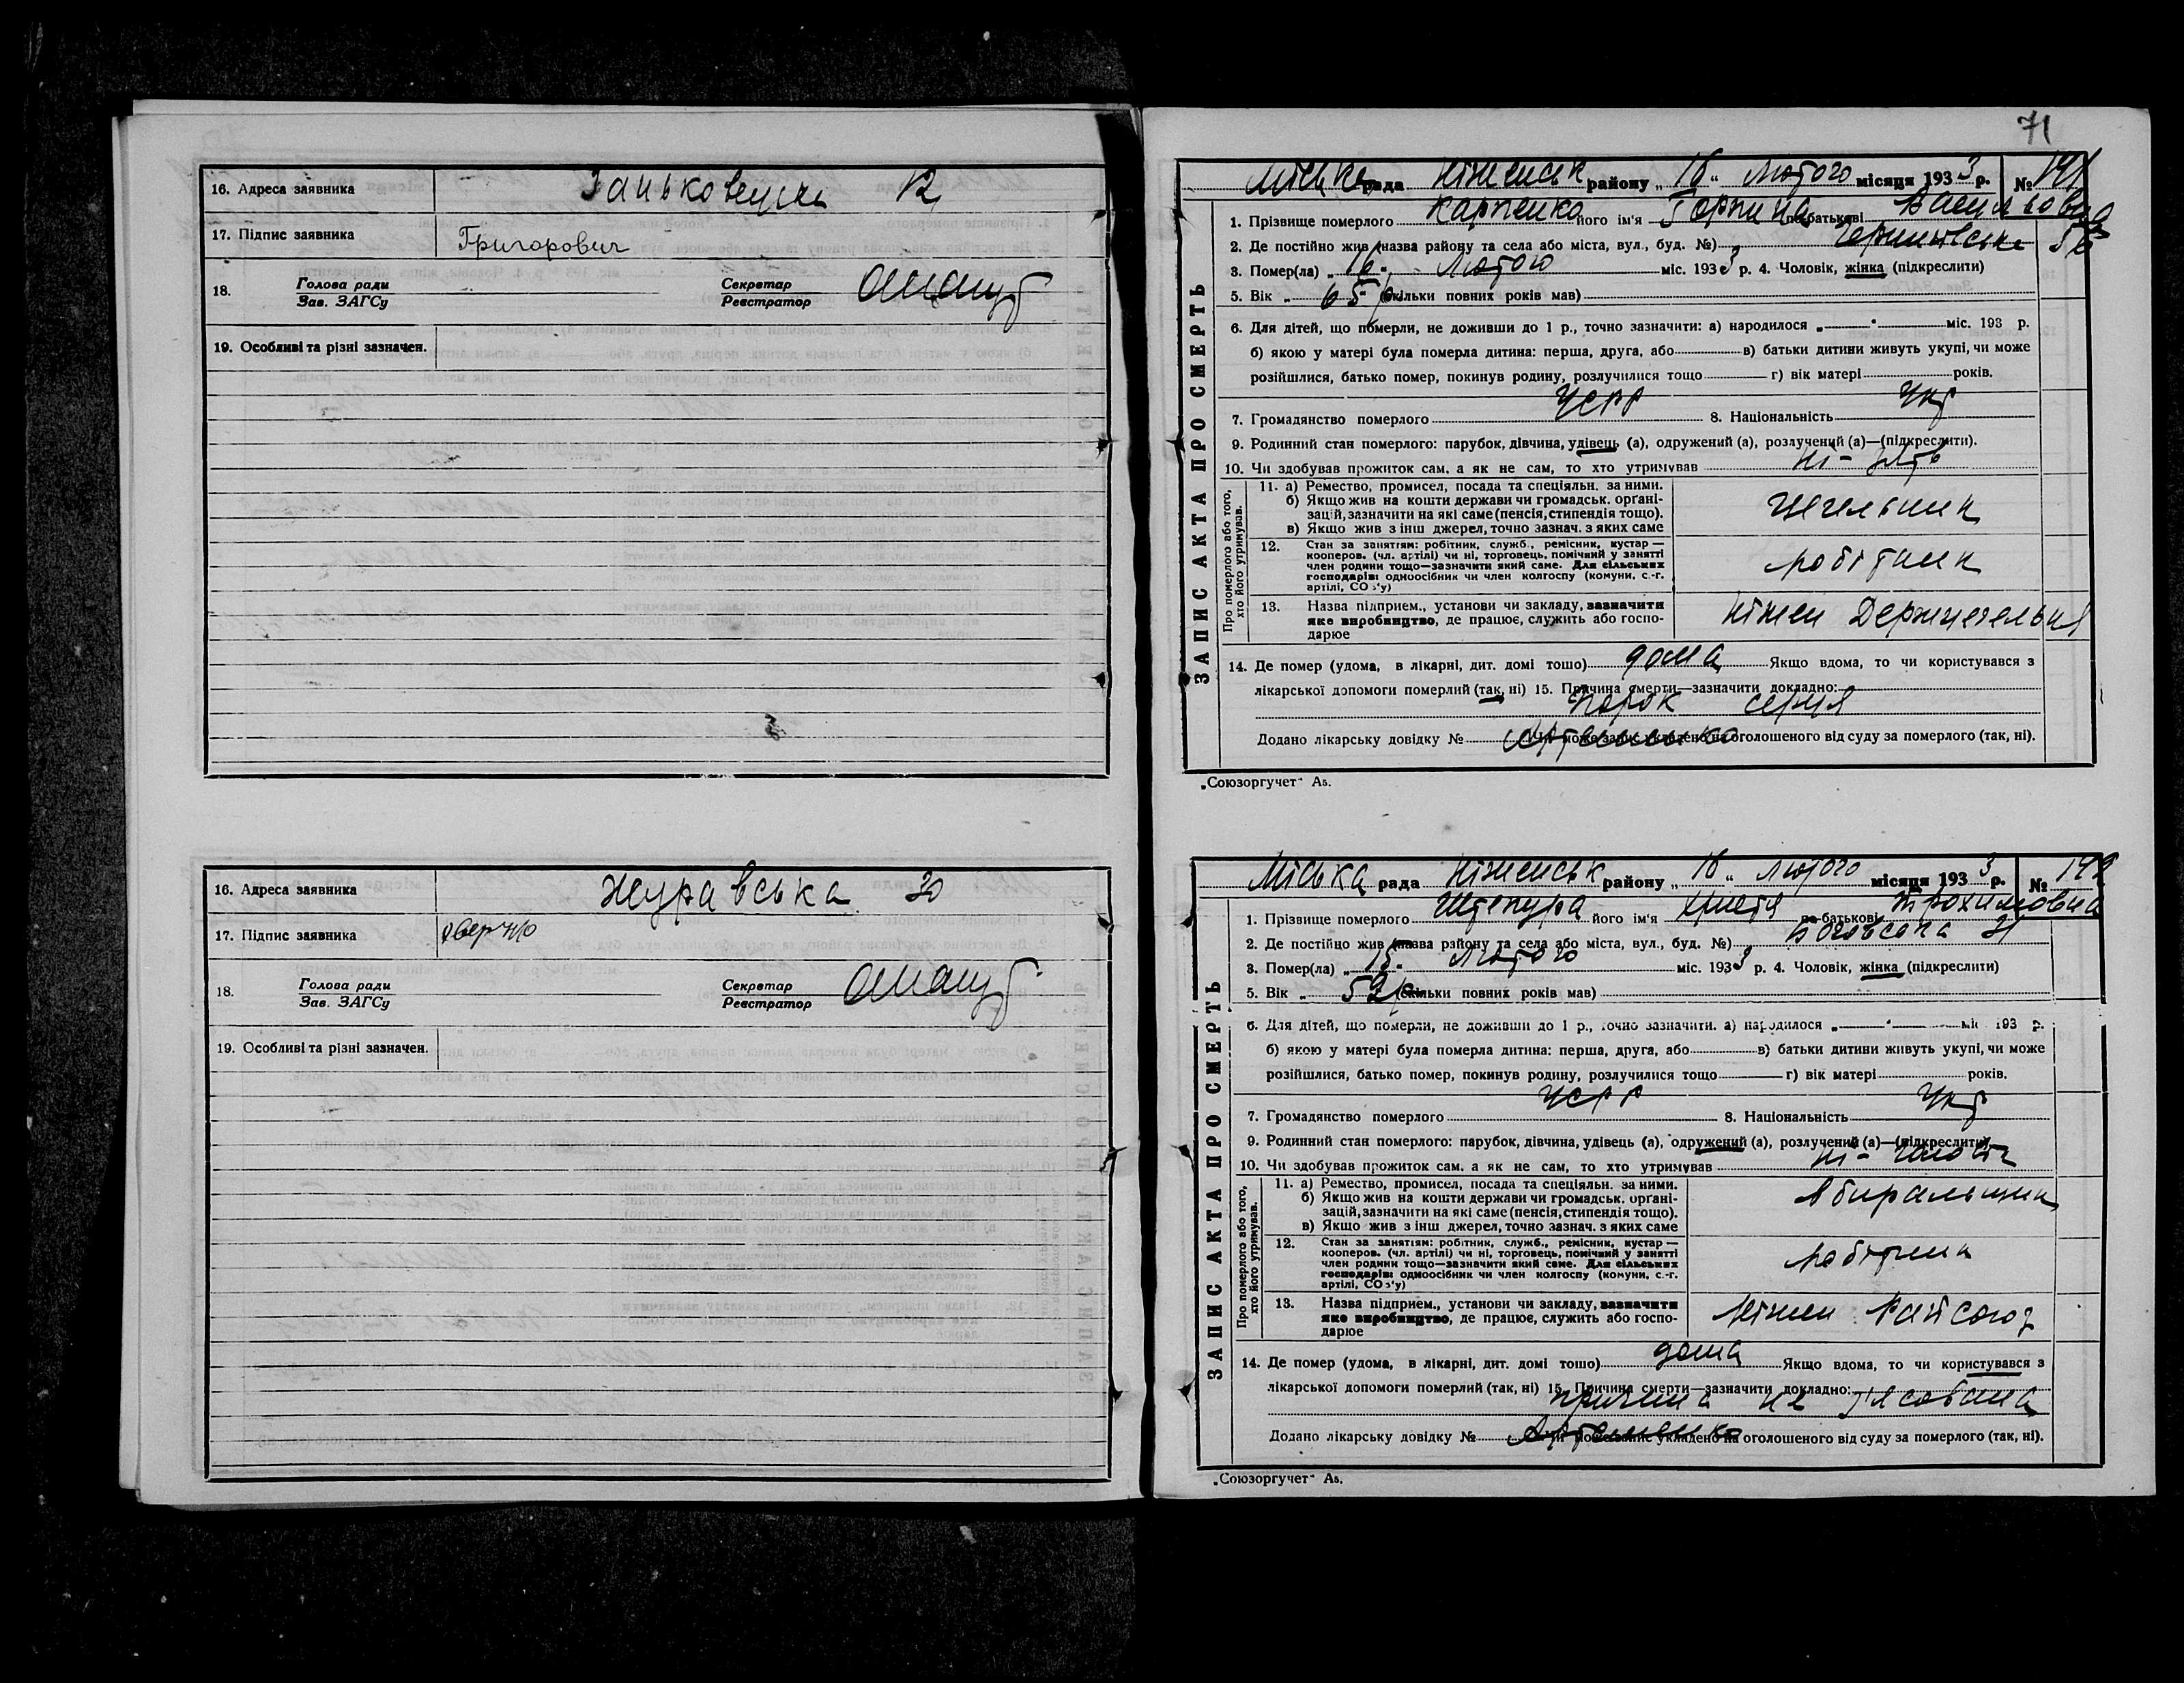 16. Адреса заявника Заньковецька 12
17. Підпис заявника Григорович
18. Голова ради Зав. ЗАГСу Секретар Реєстратор
19. Особливі та різні зазначен.
16. Адреса заявника Журавська 30
17. Підпис заявника
18. Голова ради Зав. ЗАГСу Секретар Реєстратор
19. Особливі та різні зазначен.
71
ЗАПИС АКТА ПРО СМЕРТЬ
Міська рада Ніженськ району „16“ Лютого місяця 1933 р. № 191
1. Прізвище померлого Карпенко його ім'я Горпина по батькові Васильовна
2. Де постійно жив (назва району та села або міста, вул., буд. №)
3. Помер(ла) „16“ Лютого міс. 1933 р. 4. Чоловік, жінка (підкреслити)
5. Вік „65 р. (скільки повних років мав)
6. Для дітей, що померли, не доживши до 1 р., точно зазначити: а) народилося „ “ міс. 193 р.
б) якою у матері була померла дитина: перша, друга, або в) батьки дитини живуть укупі, чи може
розійшлися, батько помер, покинув родину, розлучилися тощо г) вік матері років.
7. Громадянство померлого УСРР 8. Національність Укр
9. Родинний стан померлого: парубок, дівчина, удівець (а), одружений (а), розлучений (а)—(підкреслити).
10. Чи здобував прожиток сам, а як не сам, то хто утримував ні - зять
Про померлого або того, хто його утримував.
11. а) Ремество, промисел, посада та спеціяльн. за ними.
б) Якщо жив на кошти держави чи громадськ. орґані-
зацій, зазначити на які саме (пенсія, стипендія тощо).
в) Якщо жив з інш джерел, точно зазнач. з яких саме
цегельник
12. Стан за заняттям: робітник, служб., ремісник, кустар —
кооперов. (чл. артілі) чи ні, торговець, помічний у занятті
член родини тощо—зазначити який саме. Для сільських
господарів: одноосібник чи член колгоспу (комуни, с.-г.
артілі, СОЗ'у)
робітник
13. Назва підприєм., установи чи закладу, зазначити
яке виробництво, де працює, служить або госпо-
дарює
Ніжен Держцегельня
14. Де помер (удома, в лікарні, дит. домі тошо) дома Якщо вдома, то чи користувався з
лікарської допомоги померлий (так, ні) 15. Причина смерти—зазначити докладно:
порок серця
Додано лікарську довідку № Чи може запис укладено на оголошеного від суду за померлого (так, ні).
„Союзоргучет“ А5.
ЗАПИС АКТА ПРО СМЕРТЬ
Міська рада Ніженськ району „16“ Лютого місяця 1933 р. № 192
1. Прізвище померлого Штепура його ім'я Христя по батькові Трохимовна
2. Де постійно жив (назва району та села або міста, вул., буд. №)
3. Помер(ла) „15“ Лютого міс. 1933 р. 4. Чоловік, жінка (підкреслити)
5. Вік „52 р. (скільки повних років мав)
6. Для дітей, що померли, не доживши до 1 р., точно зазначити: а) народилося „ “ міс. 193 р.
б) якою у матері була померла дитина: перша, друга, або в) батьки дитини живуть укупі, чи може
розійшлися, батько помер, покинув родину, розлучилися тощо г) вік матері років.
7. Громадянство померлого УСРР 8. Національність Укр
9. Родинний стан померлого: парубок, дівчина, удівець (а), одружений (а), розлучений (а)—(підкреслити)
10. Чи здобував прожиток сам, а як не сам, то хто утримував ні -
Про померлого або того, хто його утримував.
11. а) Ремество, промисел, посада та спеціяльн. за ними.
б) Якщо жив на кошти держави чи громадськ. орґані-
зацій, зазначити на які саме (пенсія, стипендія тощо).
в) Якщо жив з інш джерел, точно зазнач. з яких саме
вбиральщик
12. Стан за заняттям: робітник, служб., ремісник, кустар —
кооперов. (чл. артілі) чи ні, торговець, помічний у занятті
член родини тощо—зазначити який саме. Для сільських
господарів: одноосібник чи член колгоспу (комуни, с.-г.
артілі, СОЗ'у)
робітник
13. Назва підприєм., установи чи закладу, зазначити
яке виробництво, де працює, служить або госпо-
дарює
Ніжен Райсоюз
14. Де помер (удома, в лікарні, дит. домі тошо) дома Якщо вдома, то чи користувався з
лікарської допомоги померлий (так, ні) 15. Причина смерти—зазначити докладно:
причина не з'ясована
Додано лікарську довідку № Чи може запис укладено на оголошеного від суду за померлого (так, ні).
„Союзоргучет“ А5.